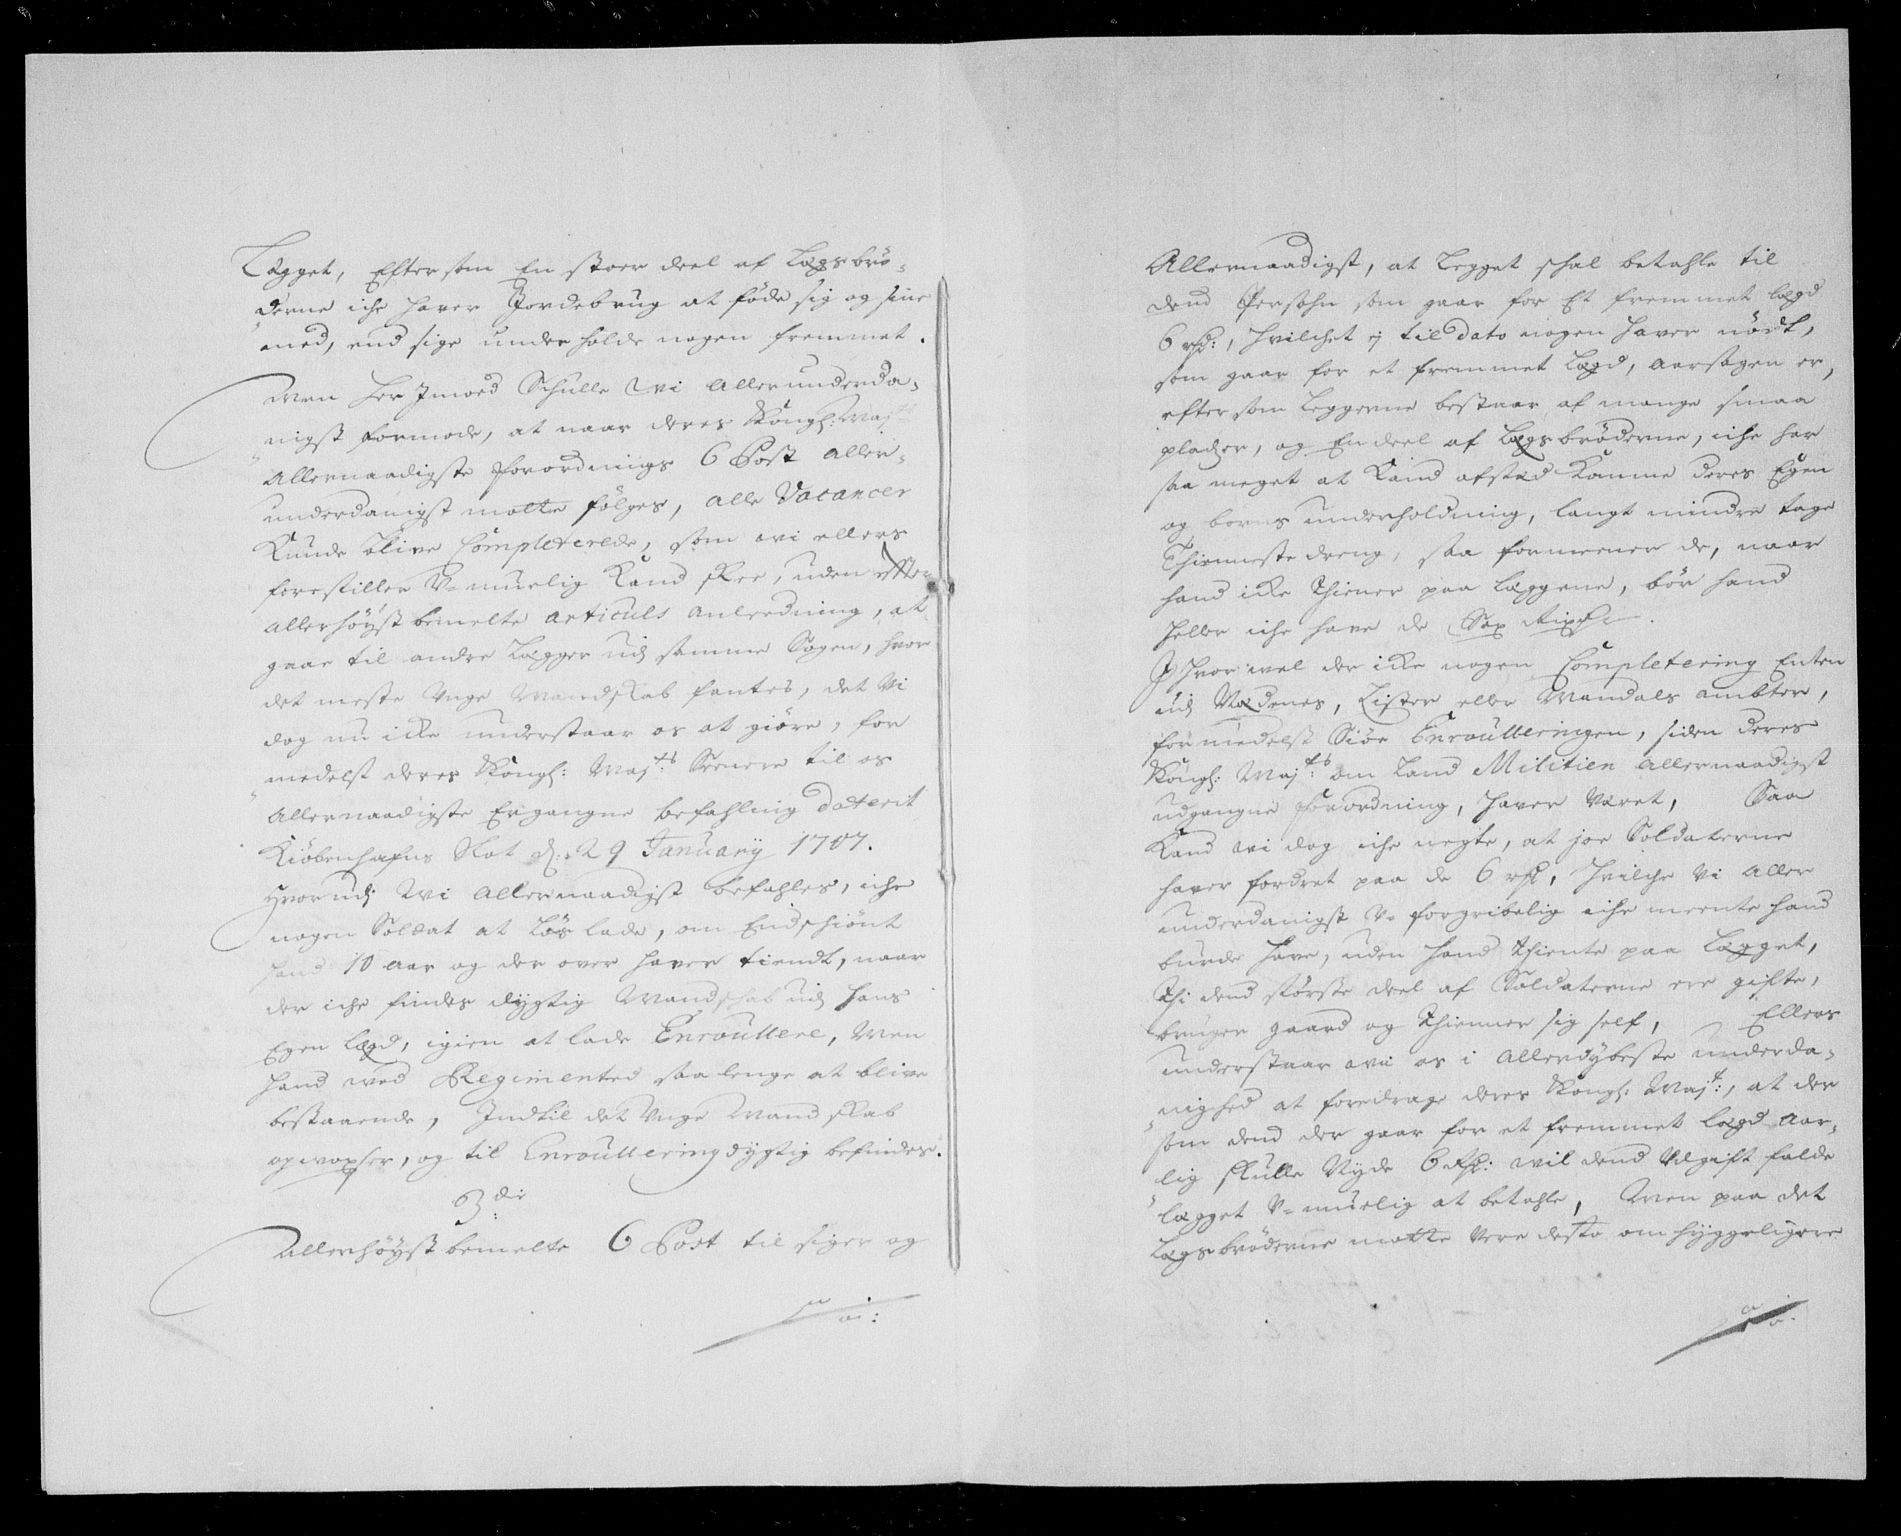 Legget, Efftersom En stoer deel af Lægsbrö-
derne iche haver Jordebrug at föde sig og sine
med, end sige underholde nogen fremmet.
Men her Imoed Schulle Wi allerunderda-
nigst formode, at naar deres Kongl: Maj:ts
Allernaadigste forordnings 6 Post aller-
underdanigst motte fölges, alle Vacancer
Kunde blive Completerede, som wi ellers
forestiller U-muelig Kand skee, uden effter
allerhöyst bemelte articuls anleedning, at
gaae til andre Lægger udj samme Sogen, hvor
det meste Unge Mandskab fantes, det Vi
dog nu icke understaar os at giöre, for
medelst deres Kongl: Maj:ts Seenere til os
Allernaadigste Ergangne befahling daterit
Kiöbenhafns Slot d: 29 January 1707.
Hvor udj Wi Allernaadigst befahles, iche
nogen Soldat at Löslade, om Endschiönt
hand 10 aar og der over haver tiendt, naar
der iche findes dygtig Mandschab udj hans
Egen Lægd, igien at lade Enroullere, Men
hand ved Regimented saa lenge at blive
bestaaende, Indtil det Unge Mandskab
opwoxser, og til Enroullering dygtig befindes.
3:die
Allerhöyst bemelte 6 Post til siger og
Allernaadigst, at Legget schal betahle til
dend Persohn som gaar for Et fremmet lægd
6 rd:, hvilchet ej til dato nogen haver nödt,
som gaar for et fremmet Lægd, aarsagen er,
eftersom Leggerne bestaar af mange smaa
pladser, og En deel af Lægsbröderne, iche har
saa meget at Kand afsted Komme deres Egen
og borns underholdning, langt mindre tage
Thienneste dreng, saa formeener de, naar
hand icke thiener paa Læggene, bör hand
heller iche have de Sex Rixdr.
J hvor wel der icke nogen Completering Enten
udj Nedenes, Lister eller Mandals ambter,
formedelst Siöe Enroulleringen, siden deres
Kongl: Maj:ts om Land Militien allernaadigst
udgangne forordning, haver Været, Saa
Kand wi dog iche negte, at joe Soldaterne
haver fordret paa de 6 rd, hvilche Vi aller
underdanigst U-forgribelig iche meente hand
burde have, uden hand thiente paa Legget,
thi dend störste deel af Soldaterne ere gifte,
bruger gaard og thienner sig self, Ellers
understaar wii os i allerdybeste underda-
nighed at foredrage deres Kongl: Maj:t, at der
som dend der gaar for et fremmet Lægd aar-
lig skulle Nyde 6 Rd: wil dend Udgift falde
legget U-muelig at betahle, Men paa det
Legsbröderne motte Vere desto om hyggeligere